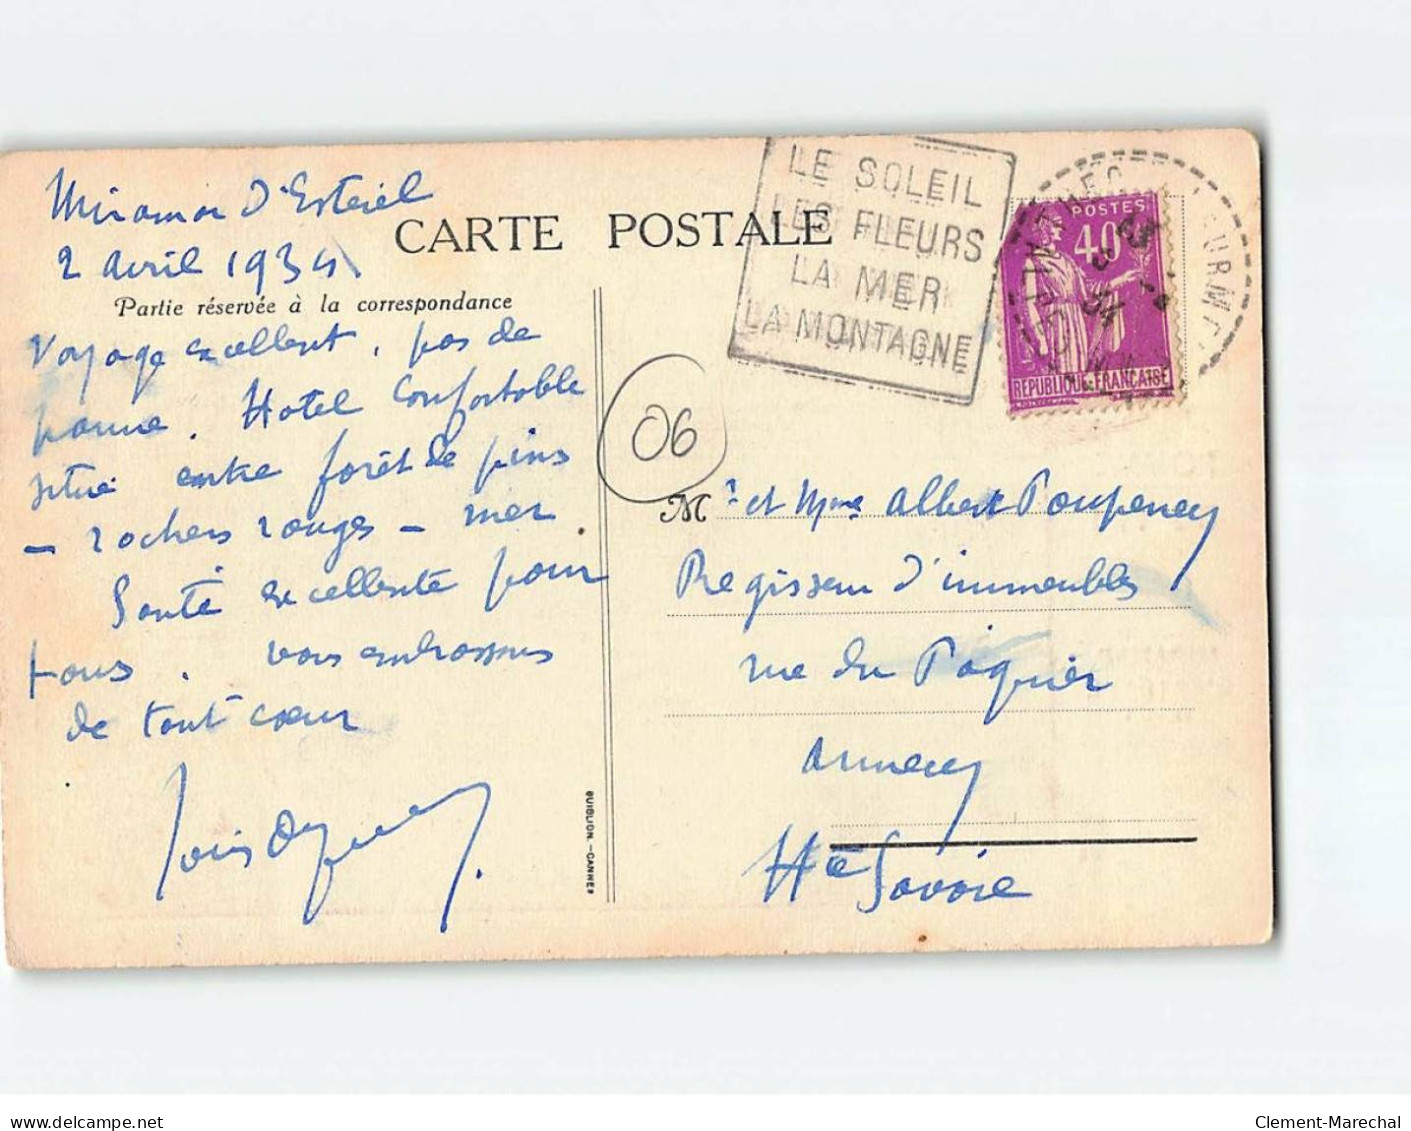 Miramar d'Esterel
2 avril 1934
CARTE POSTALE
Partie réservée à la correspondance
LE SOLEIL
LES FLEURS
LA MER
LA MONTAGNE
POSTES
40
REPUBLIQUE FRANÇAISE
Voyage excellent, pas de
panne. Hotel confortable
situé entre forêt de pins
- rochers rouges - mer
Santé excellente pour
tous. vous embrassons
de tout cœur
Louis
06
Mr et Mme Albert Poupeney
Regisseur d'immeubles
rue du Pâquier
Annecy
Hte Savoie
GUIGLION - CANNES
delcampe.net
Clement-Marechal